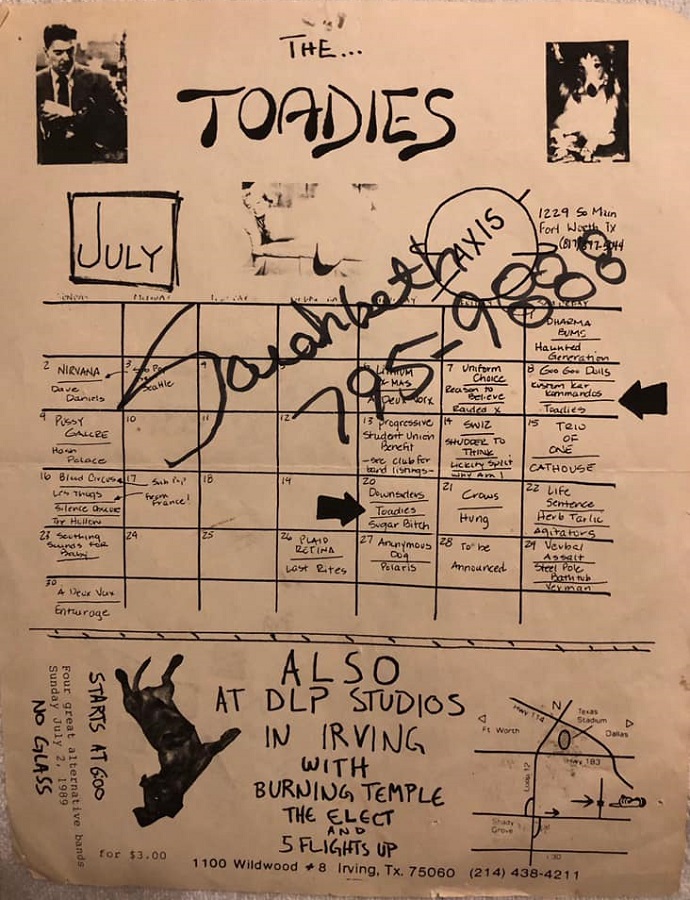 THE...
TOADIES
JULY
AXIS
1229 So Main
Fort Worth Tx
Sarahbeth
795-9
1
DHARMA
BUMS
Haunted
Generation
2 NIRVANA
Dave
Daniels
3 Sub Pop
Seattle
4
LITHIUM
X MAS
A Deux Vox
7 Uniform
Choice
Reason to
Believe
Raided X
8 Goo Goo Dolls
Kustom Kar
Kommandos
Toadies
9 PUSSY
GALORE
Palace
10
11
12
13 Progressive
Student Union
Benefit
-see club for
band listings-
14 SWIZ
SHUDDER TO
THINK
Lickity Split
Why Am I
15 TRIO
OF
ONE
CATHOUSE
16 Blind Circus
Les Thugs
17 Sub Pop
from
France!
18
19
20
Downsiders
Toadies
Sugar Bitch
21 Crows
Hung
22 Life
Sentence
Herb Tarlic
Agitators
23 Soothing
Sounds for
Baby
24
25
26 PLAID
RETINA
Last Rites
27 Anonymous
Dog
Polaris
28 To be
Announced
29 Verbal
Assalt
Steel Pole
Bathtub
Verman
30
A Deux Vox
Entourage
ALSO
AT DLP STUDIOS
IN IRVING
WITH
BURNING TEMPLE
THE ELECT
AND
5 FLIGHTS UP
STARTS AT 600
Four great alternative bands
Sunday July 2, 1989
NO GLASS
for $3.00
1100 Wildwood #8 Irving, Tx. 75060 (214) 438-4211
Hwy 114
N
Texas
Stadium
Ft Worth
Dallas
Hwy 183
Loop 12
Shady
Grove
I 30